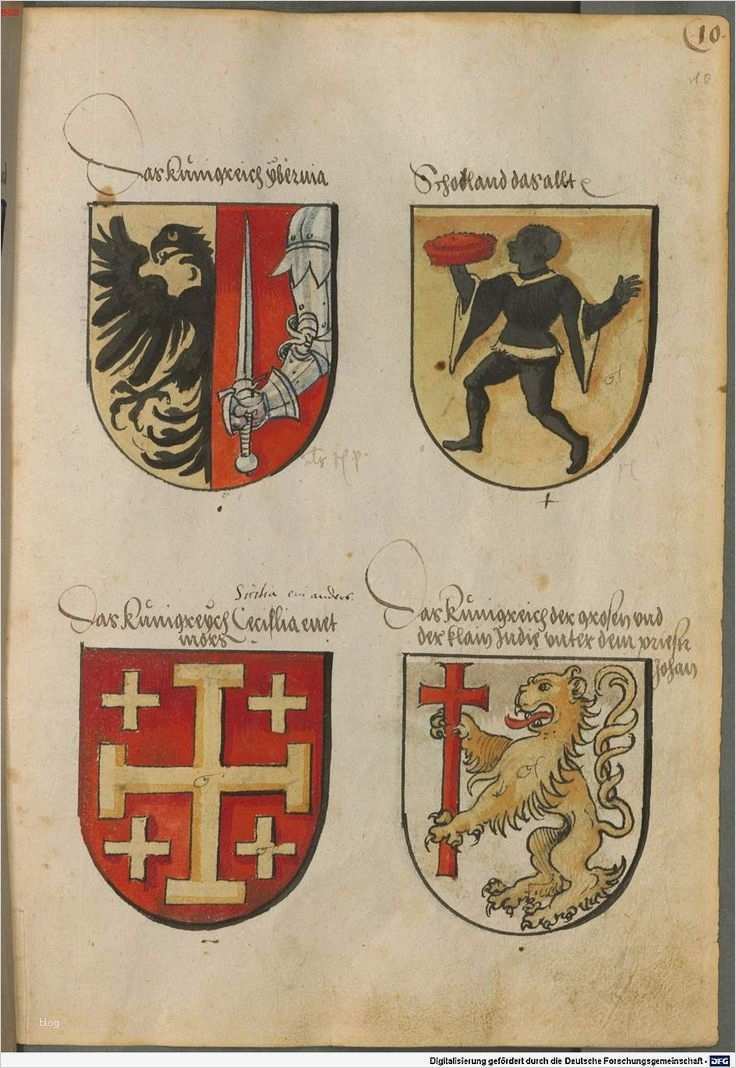 10.
Das kunigreich ybernia
Schotland das allt
Sicilia ein anders.
Das kunigreych Cecillia enet
mors
Das kunigreich der grosen vnd
der klain Indie vnter dem priest
Johan
blog
Digitalisierung gefördert durch die Deutsche Forschungsgemeinschaft - DFG